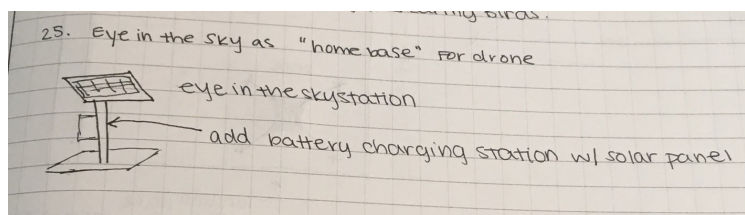 25. Eye in the sky as "home base" for drone
eye in the skystation
add battery charging station w/ solar panel